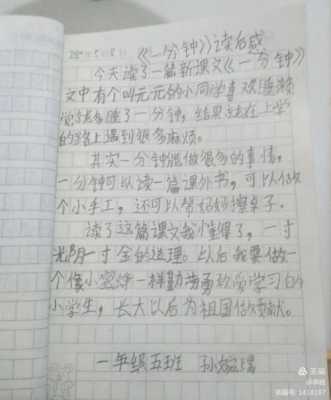 《一分钟》读后感
今天读了一篇新课文《一分钟》
文中有个叫元元的小同学喜欢睡懒
觉就多睡了一分钟，结果在上学
的路上遇到很多麻烦。
其实一分钟能做很多的事情，
一分钟可以读一篇课外书，可以做
个小手工，还可以帮妈妈擦桌子。
读了这篇课文我懂得了，一寸
光阴一寸金的道理。以后我要做一
个像小蜜蜂一样勤劳勇敢爱学习的
小学生，长大以后为祖国做贡献。
一年级五班 孙